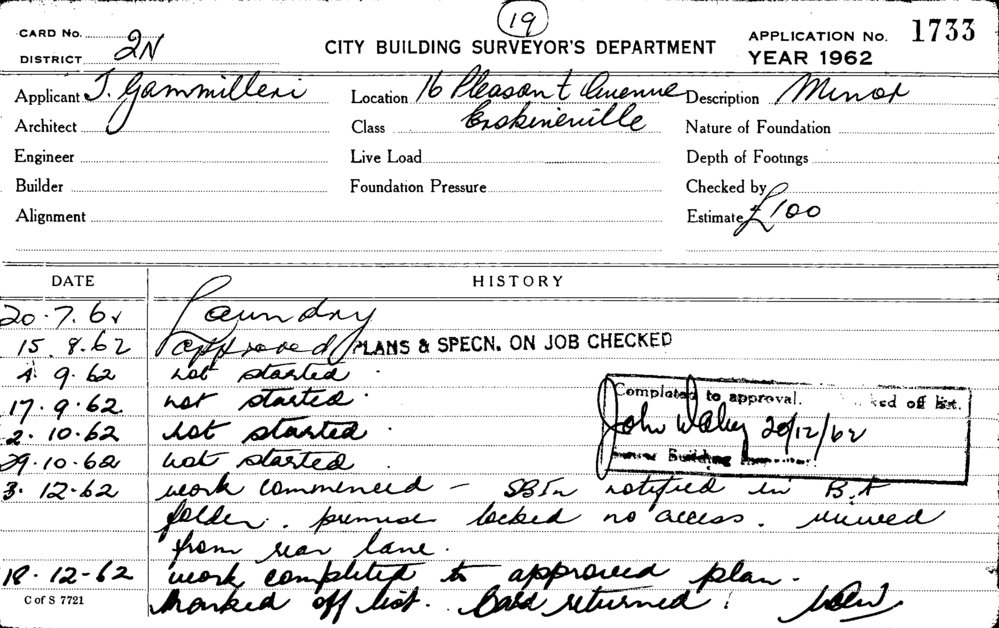 19
CARD No.
DISTRICT 2N
CITY BUILDING SURVEYOR'S DEPARTMENT
APPLICATION No. 1733
YEAR 1962
Applicant J. Gammilleri Location 16 Pleasant Avenue Description Minor
Architect Class Erskineville Nature of Foundation
Engineer Live Load Depth of Footings
Builder Foundation Pressure Checked by
Alignment Estimate £100
DATE HISTORY
20.7.62 Laundry
15 8.62 approved PLANS & SPECN. ON JOB CHECKED
4 9.62 not started
17.9.62 not started.
2.10.62 not started.
29.10.62 not started.
Completed to approval. ked off list.
John Daley 20/12/62
Senior Building
3.12.62 work commenced - SBIn notified in B.A
folder. premises locked no access. viewed
from rear lane.
18.12-62 work completed to approved plan.
Marked off list. Card returned.
C of S 7721